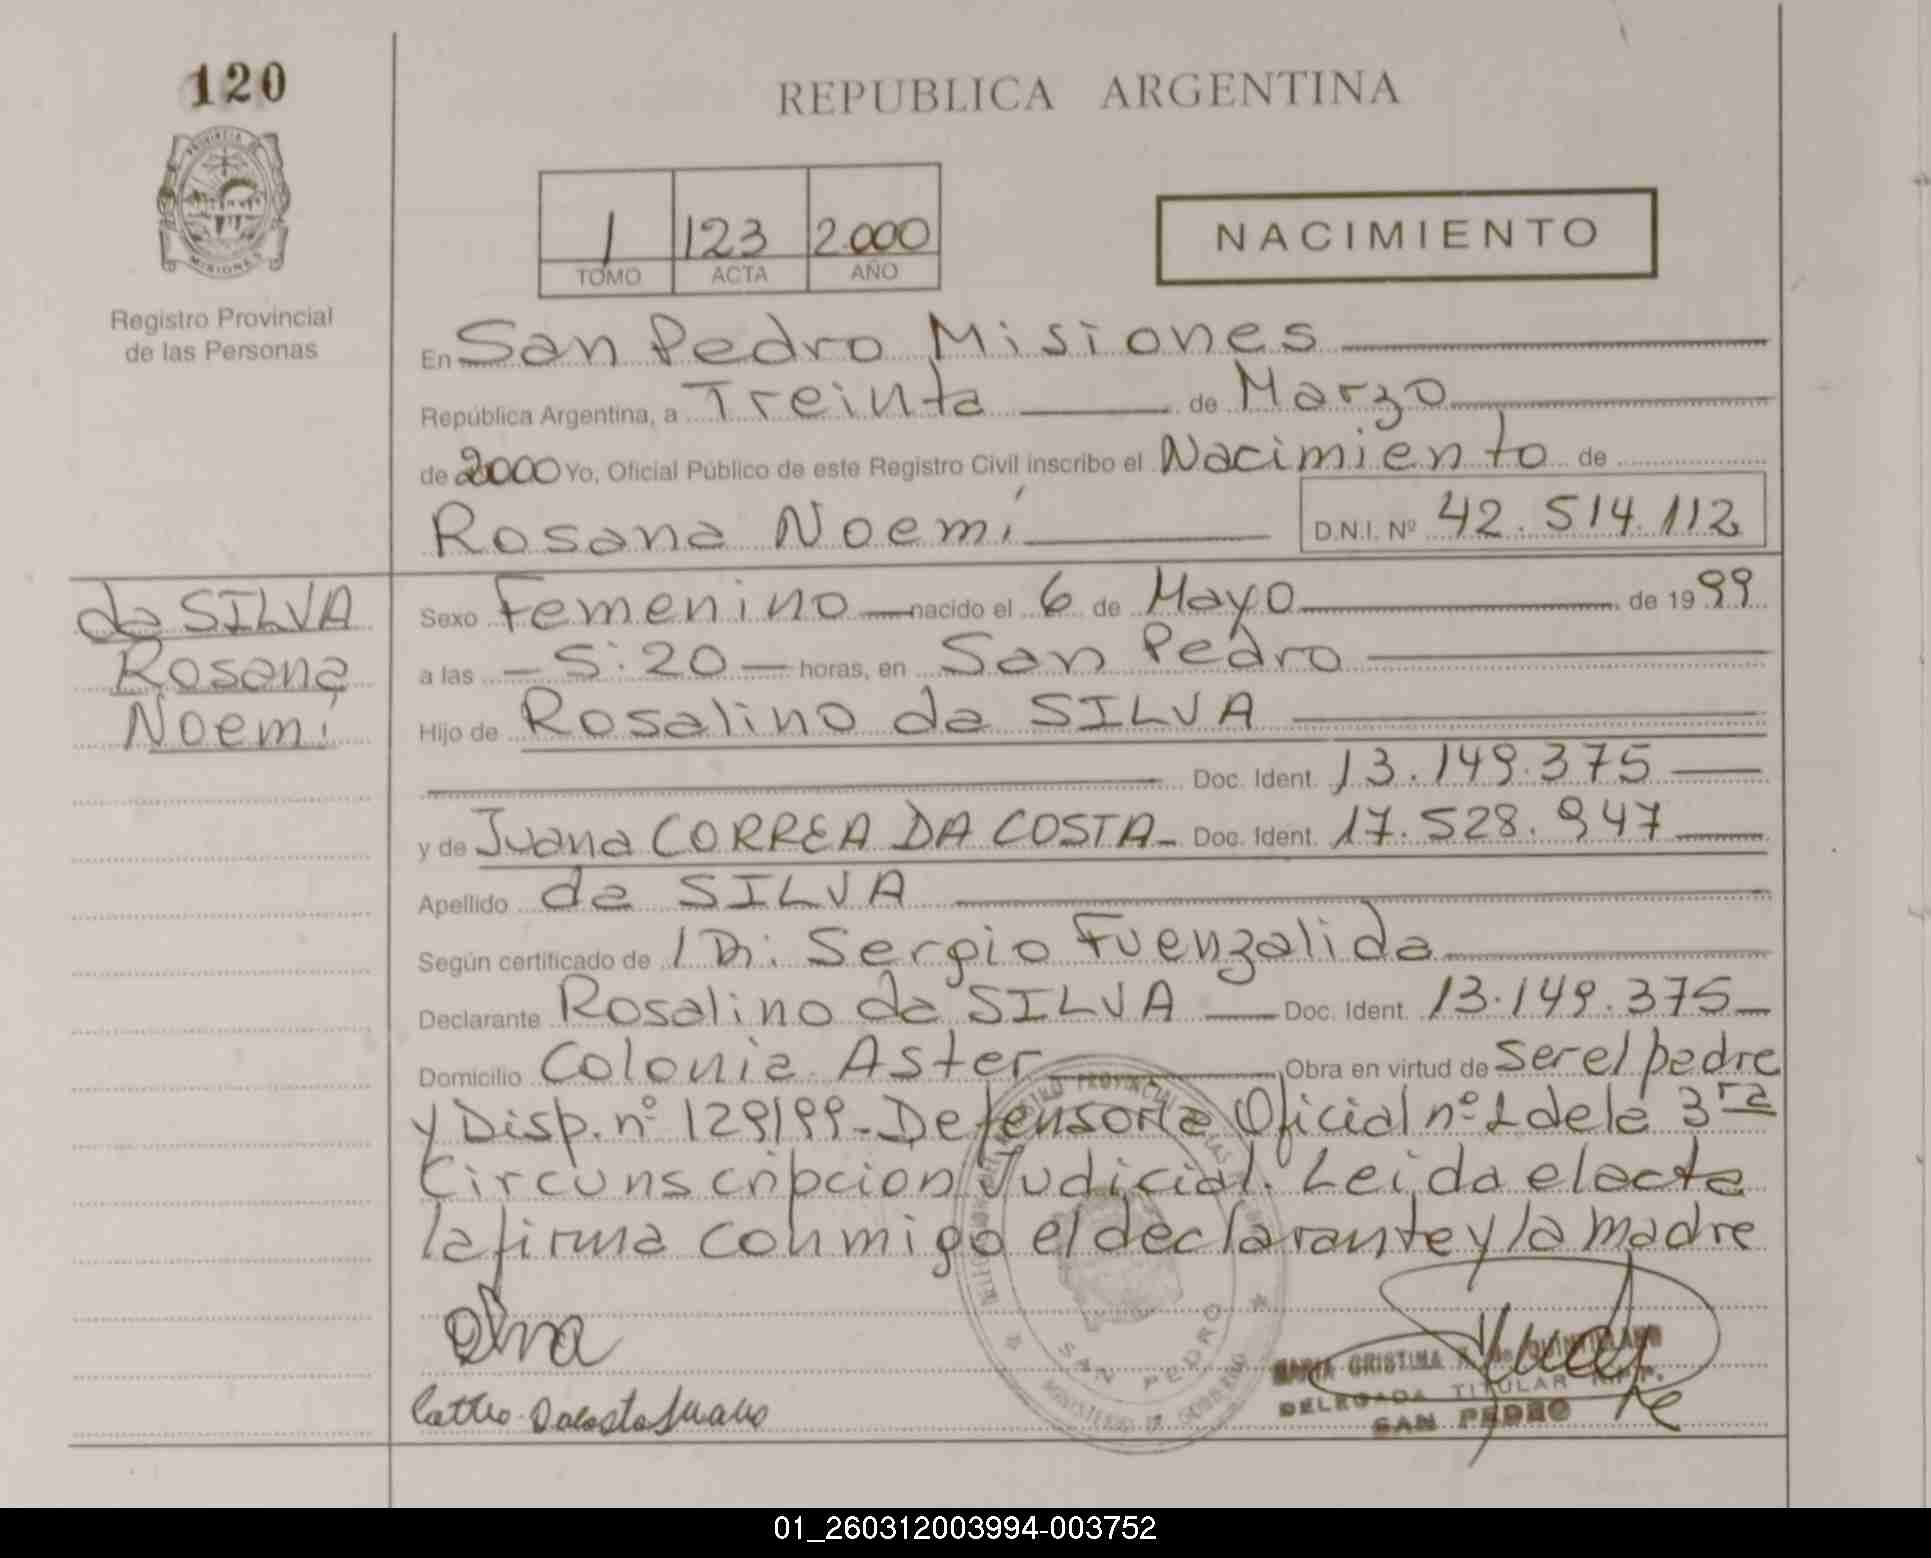 120
REPUBLICA ARGENTINA
PROVINCIA DE
MISIONES
Registro Provincial
de las Personas
1 123 2.000
TOMO ACTA AÑO
NACIMIENTO
En San Pedro Misiones
República Argentina, a Treinta de Marzo
de 2000 Yo, Oficial Público de este Registro Civil inscribo el Nacimiento de
Rosana Noemí D.N.I. Nº 42.514.112
da SILVA
Rosana
Noemí
Sexo Femenino nacido el 6 de Mayo de 1999
a las - 5:20 - horas, en San Pedro
Hijo de Rosalino da SILVA
Doc. Ident. 13.149.375
y de Juana CORREA DA COSTA - Doc. Ident. 17.528.947
Apellido da SILVA
Según certificado de Sergio Fuenzalida
Declarante Rosalino da SILVA Doc. Ident. 13.149.375
Domicilio Colonia Aster Obra en virtud de ser el padre
y Disp. nº 129/99 - Defensoria Oficial nº 1 de la 3ra
Circunscripcion Judicial. Leida el acta
la firma conmigo el declarante y la madre
SAN PEDRO
MINISTERIO DE GOBIERNO
MARIA CRISTINA
DELEGADA TITULAR R.P.P.
SAN PEDRO
01_260312003994-003752